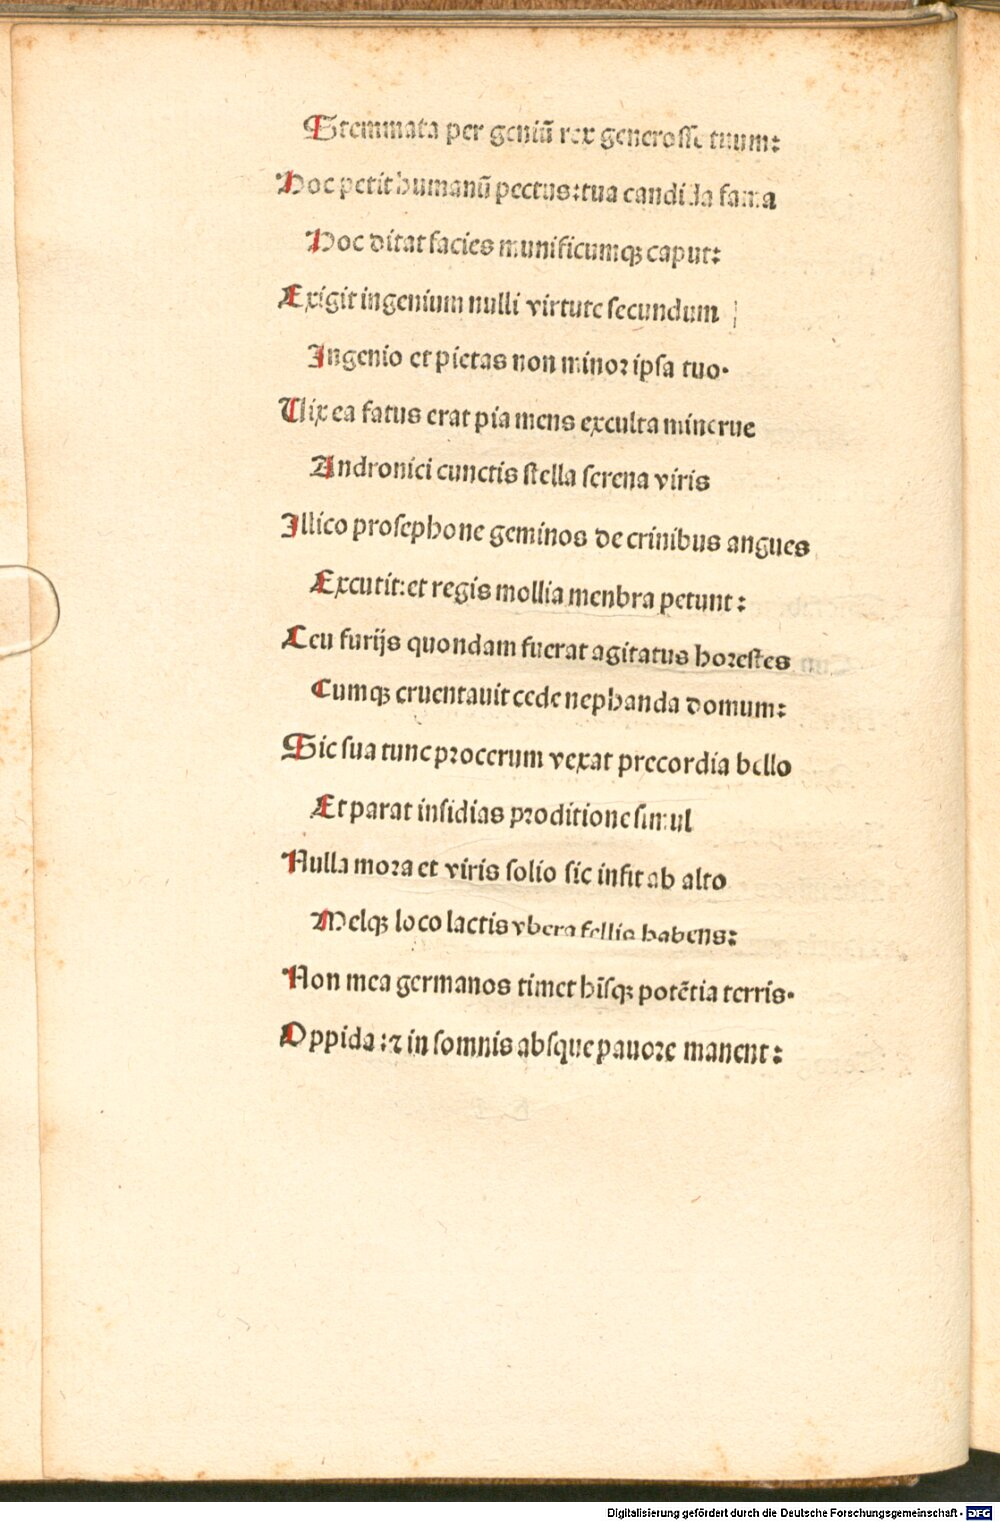 Stemmata per geniū rex generosse tuum:
Hoc petit humanū pectus: tua candida fama
Hoc ditat facies munificumqȝ caput:
Exigit ingenium nulli virtute secundum
Ingenio et pietas non minor ipsa tuo.
Vix ea fatus erat pia mens exculta minerue
Andronici cunctis stella serena viris
Illico prosephone geminos de crinibus angues
Excutit: et regis mollia menbra petunt:
Ceu furijs quondam fuerat agitatus horestes
Cumqȝ cruentauit cede nephanda domum:
Sic sua tunc procerum vexat precordia bello
Et parat insidias proditione simul
Nulla mora et viris solio sic infit ab alto
Melqȝ loco lactis vbera fellis habens:
Non mea germanos timet hīsqȝ potētia terris.
Oppida: ⁊ in somnis absque pauore manent:
Digitalisierung gefördert durch die Deutsche Forschungsgemeinschaft - DFG